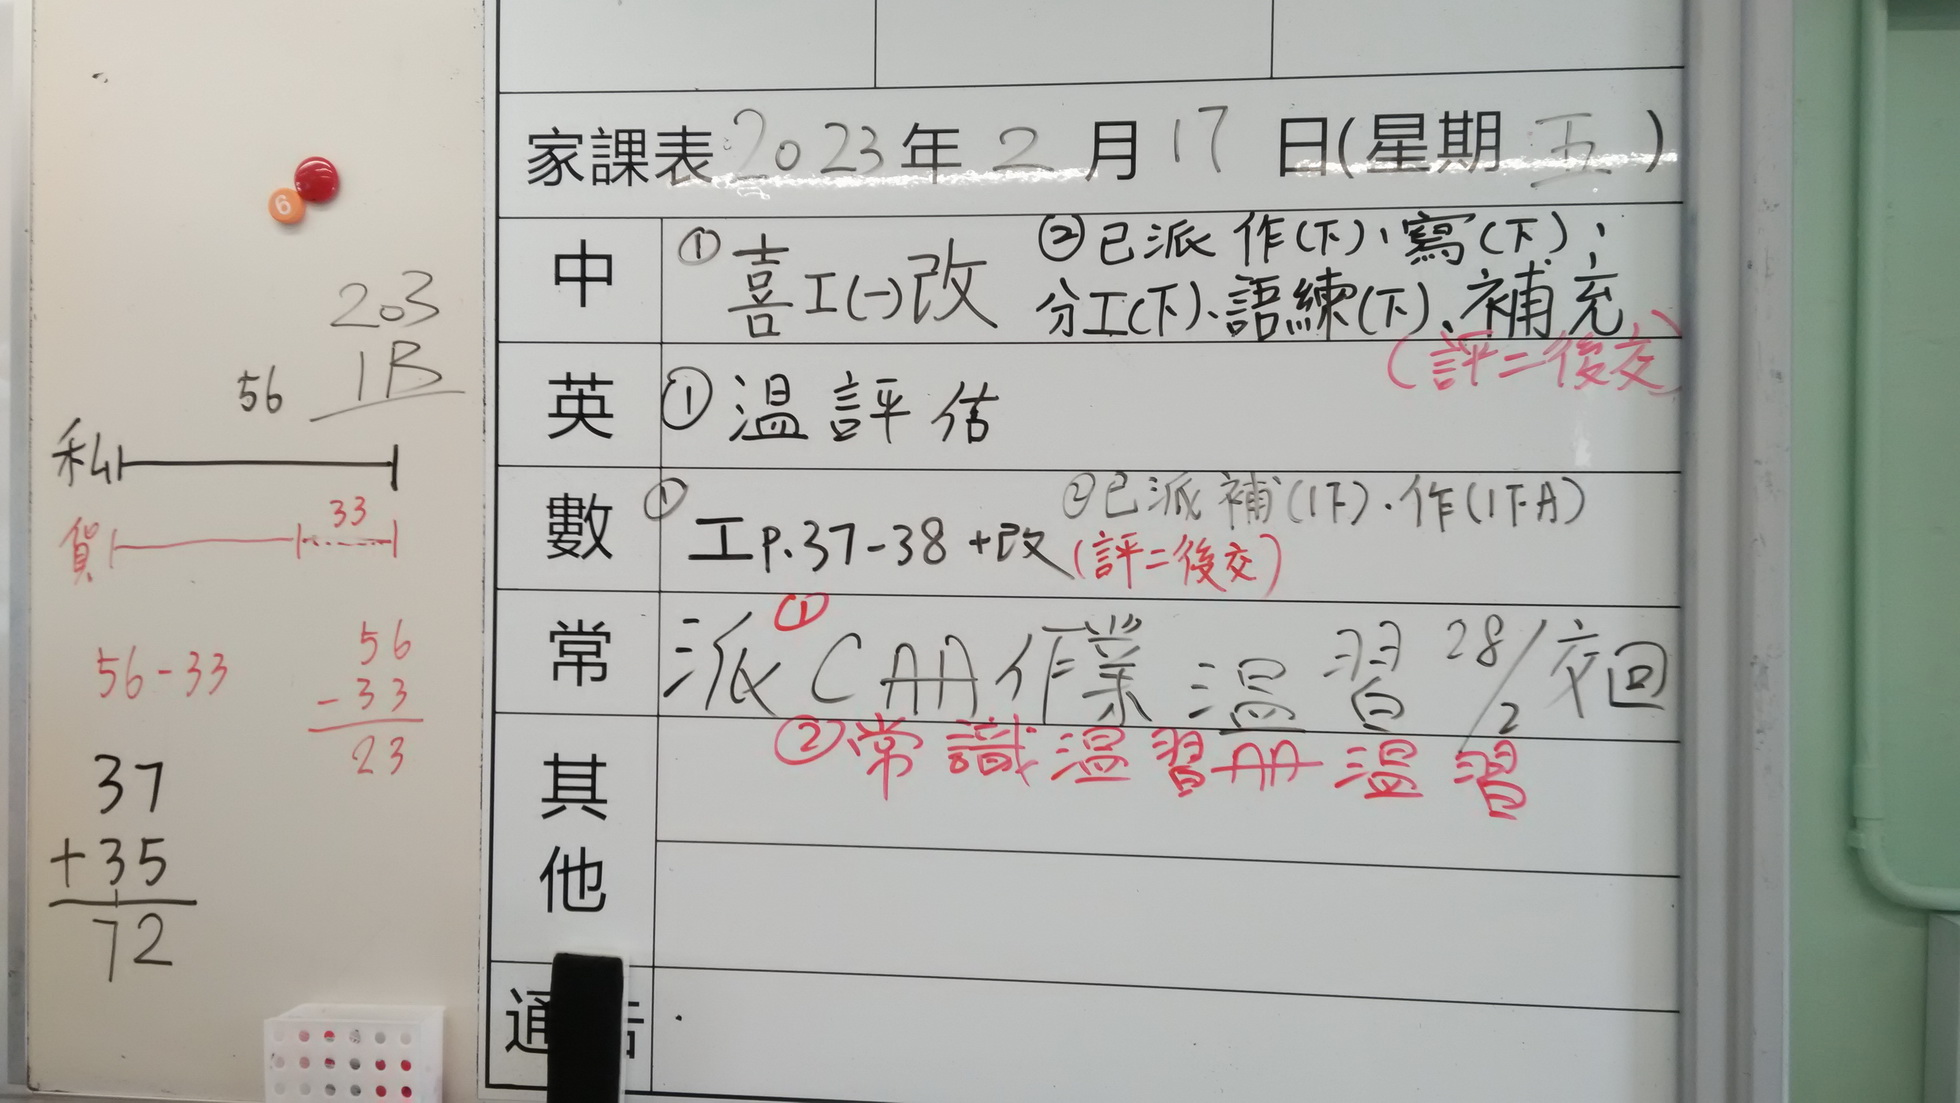 家課表 2023年2月17日(星期五)
中 ①喜工(一)改 ②已派作(下)、寫(下)、
分工(下)、語練(下)、補充
(評二後交)
英 ①溫評估
數 ①工P.37-38+改 ②已派補(1下).作(1下A)
(評二後交)
常 派①CAA作業溫習 28/2交回
②常識溫習冊溫習
其他
通告
6
203
1B
56
私
33
貨
56-33
56
-33
23
37
+35
1
72